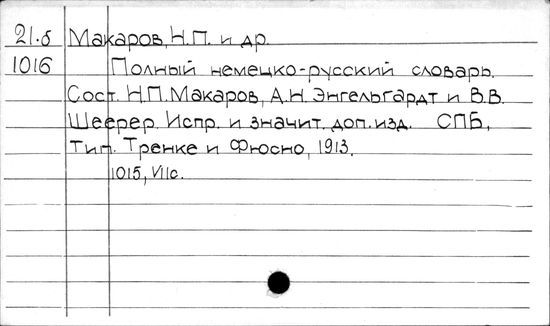 21.б Макаров, Н.П. и др.
1016 Полный немецко-русский словарь.
Сост. Н.П. Макаров, А.Н. Энгельгардт и В.В.
Шеерер. Испр. и значит. доп. изд. СПБ,
Тип. Тренке и Фюсно, 1913.
1015, VII с.